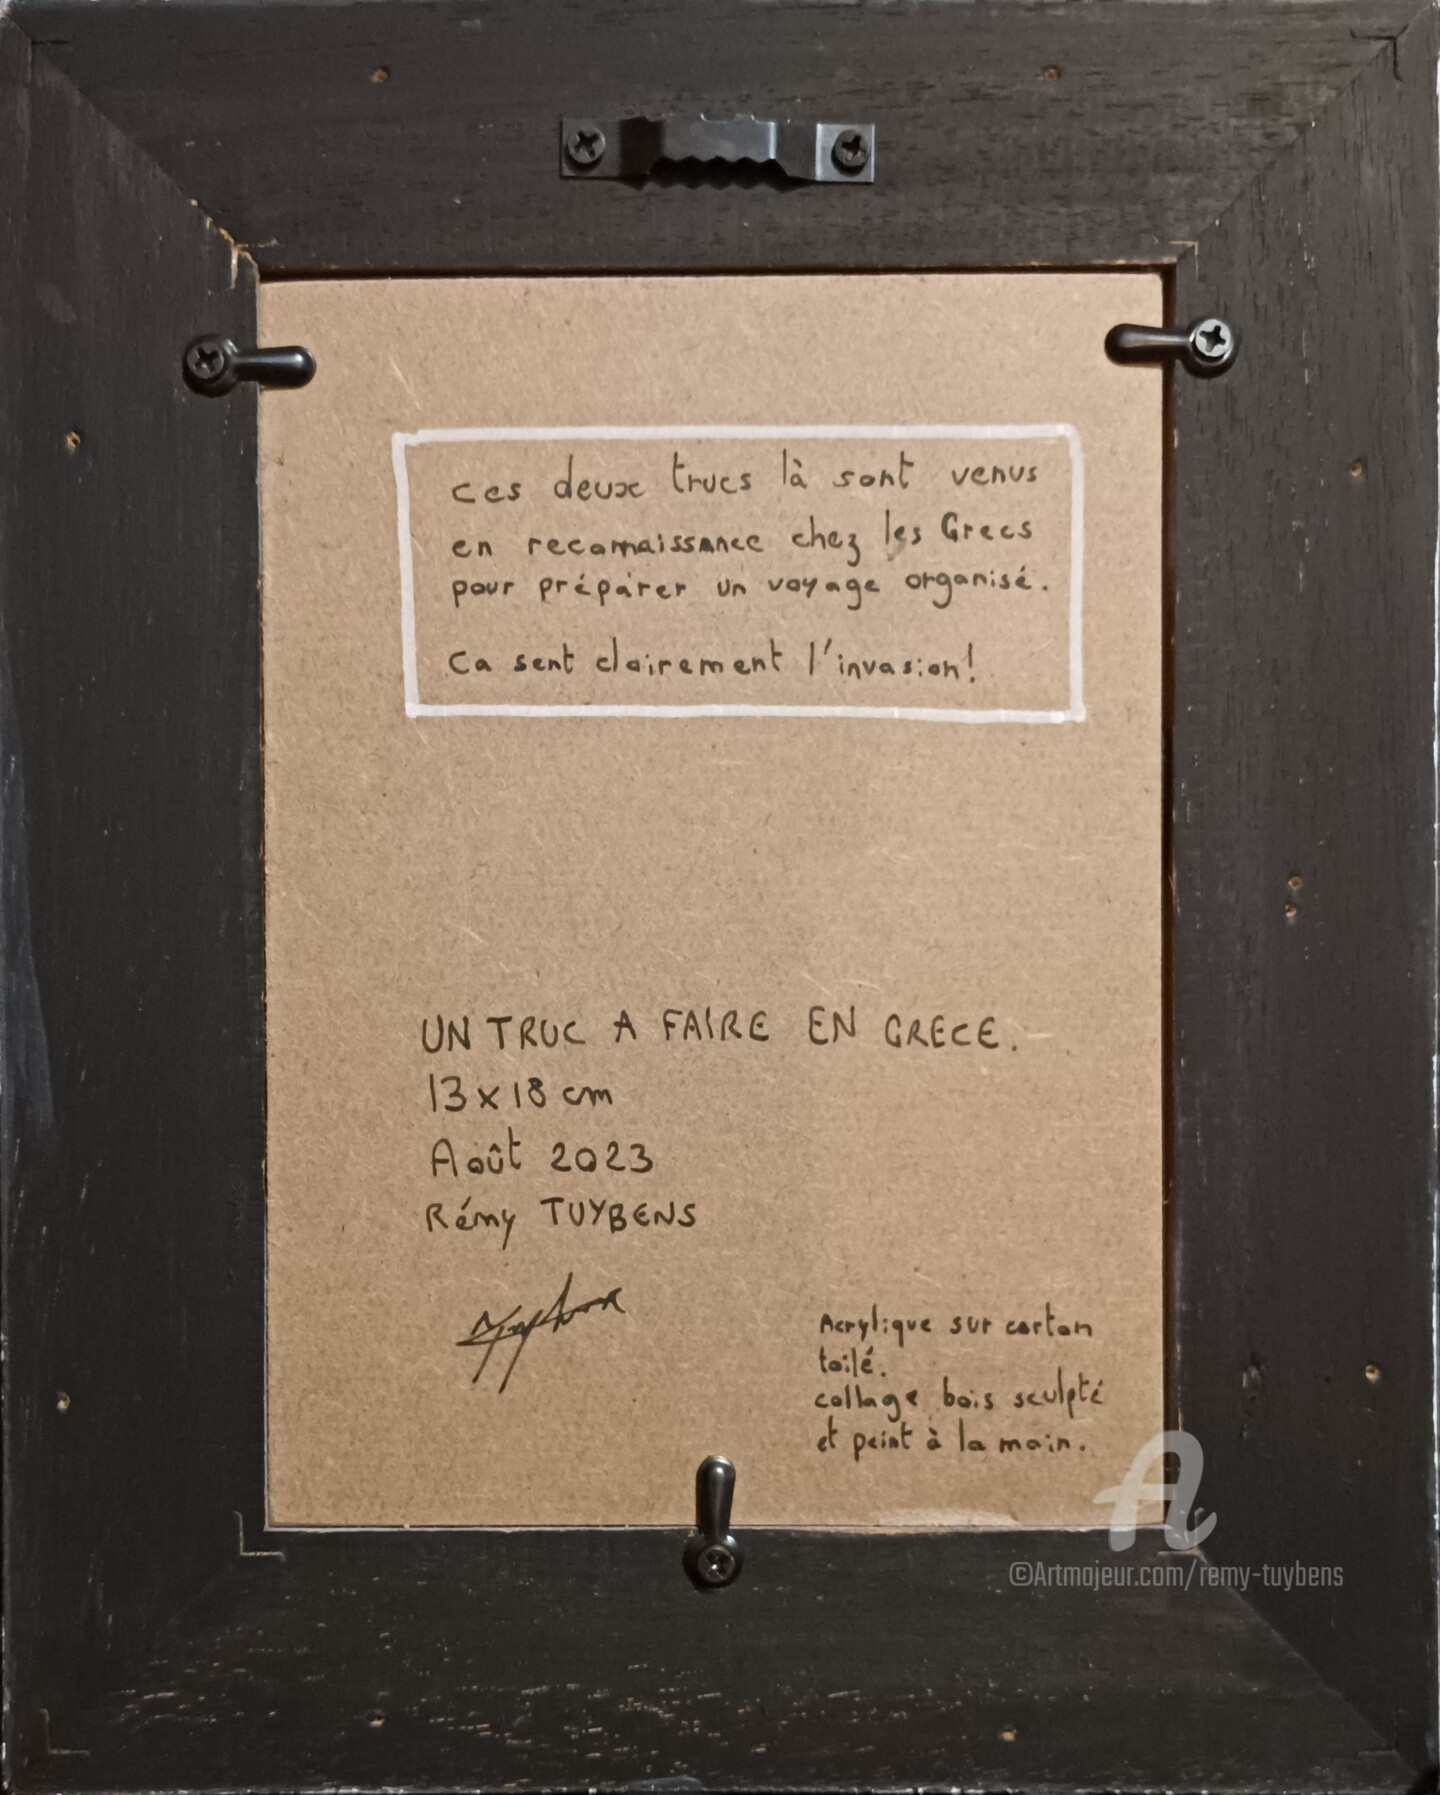 ces deux trucs là sont venus
en reconnaissance chez les Grecs
pour préparer un voyage organisé.
Ca sent clairement l'invasion!
UN TRUC A FAIRE EN GRECE.
13 x 18 cm
Août 2023
Rémy TUYBENS
Acrylique sur carton
toilé.
collage bois sculpté
et peint à la main.
A
©Artmajeur.com/remy-tuybens